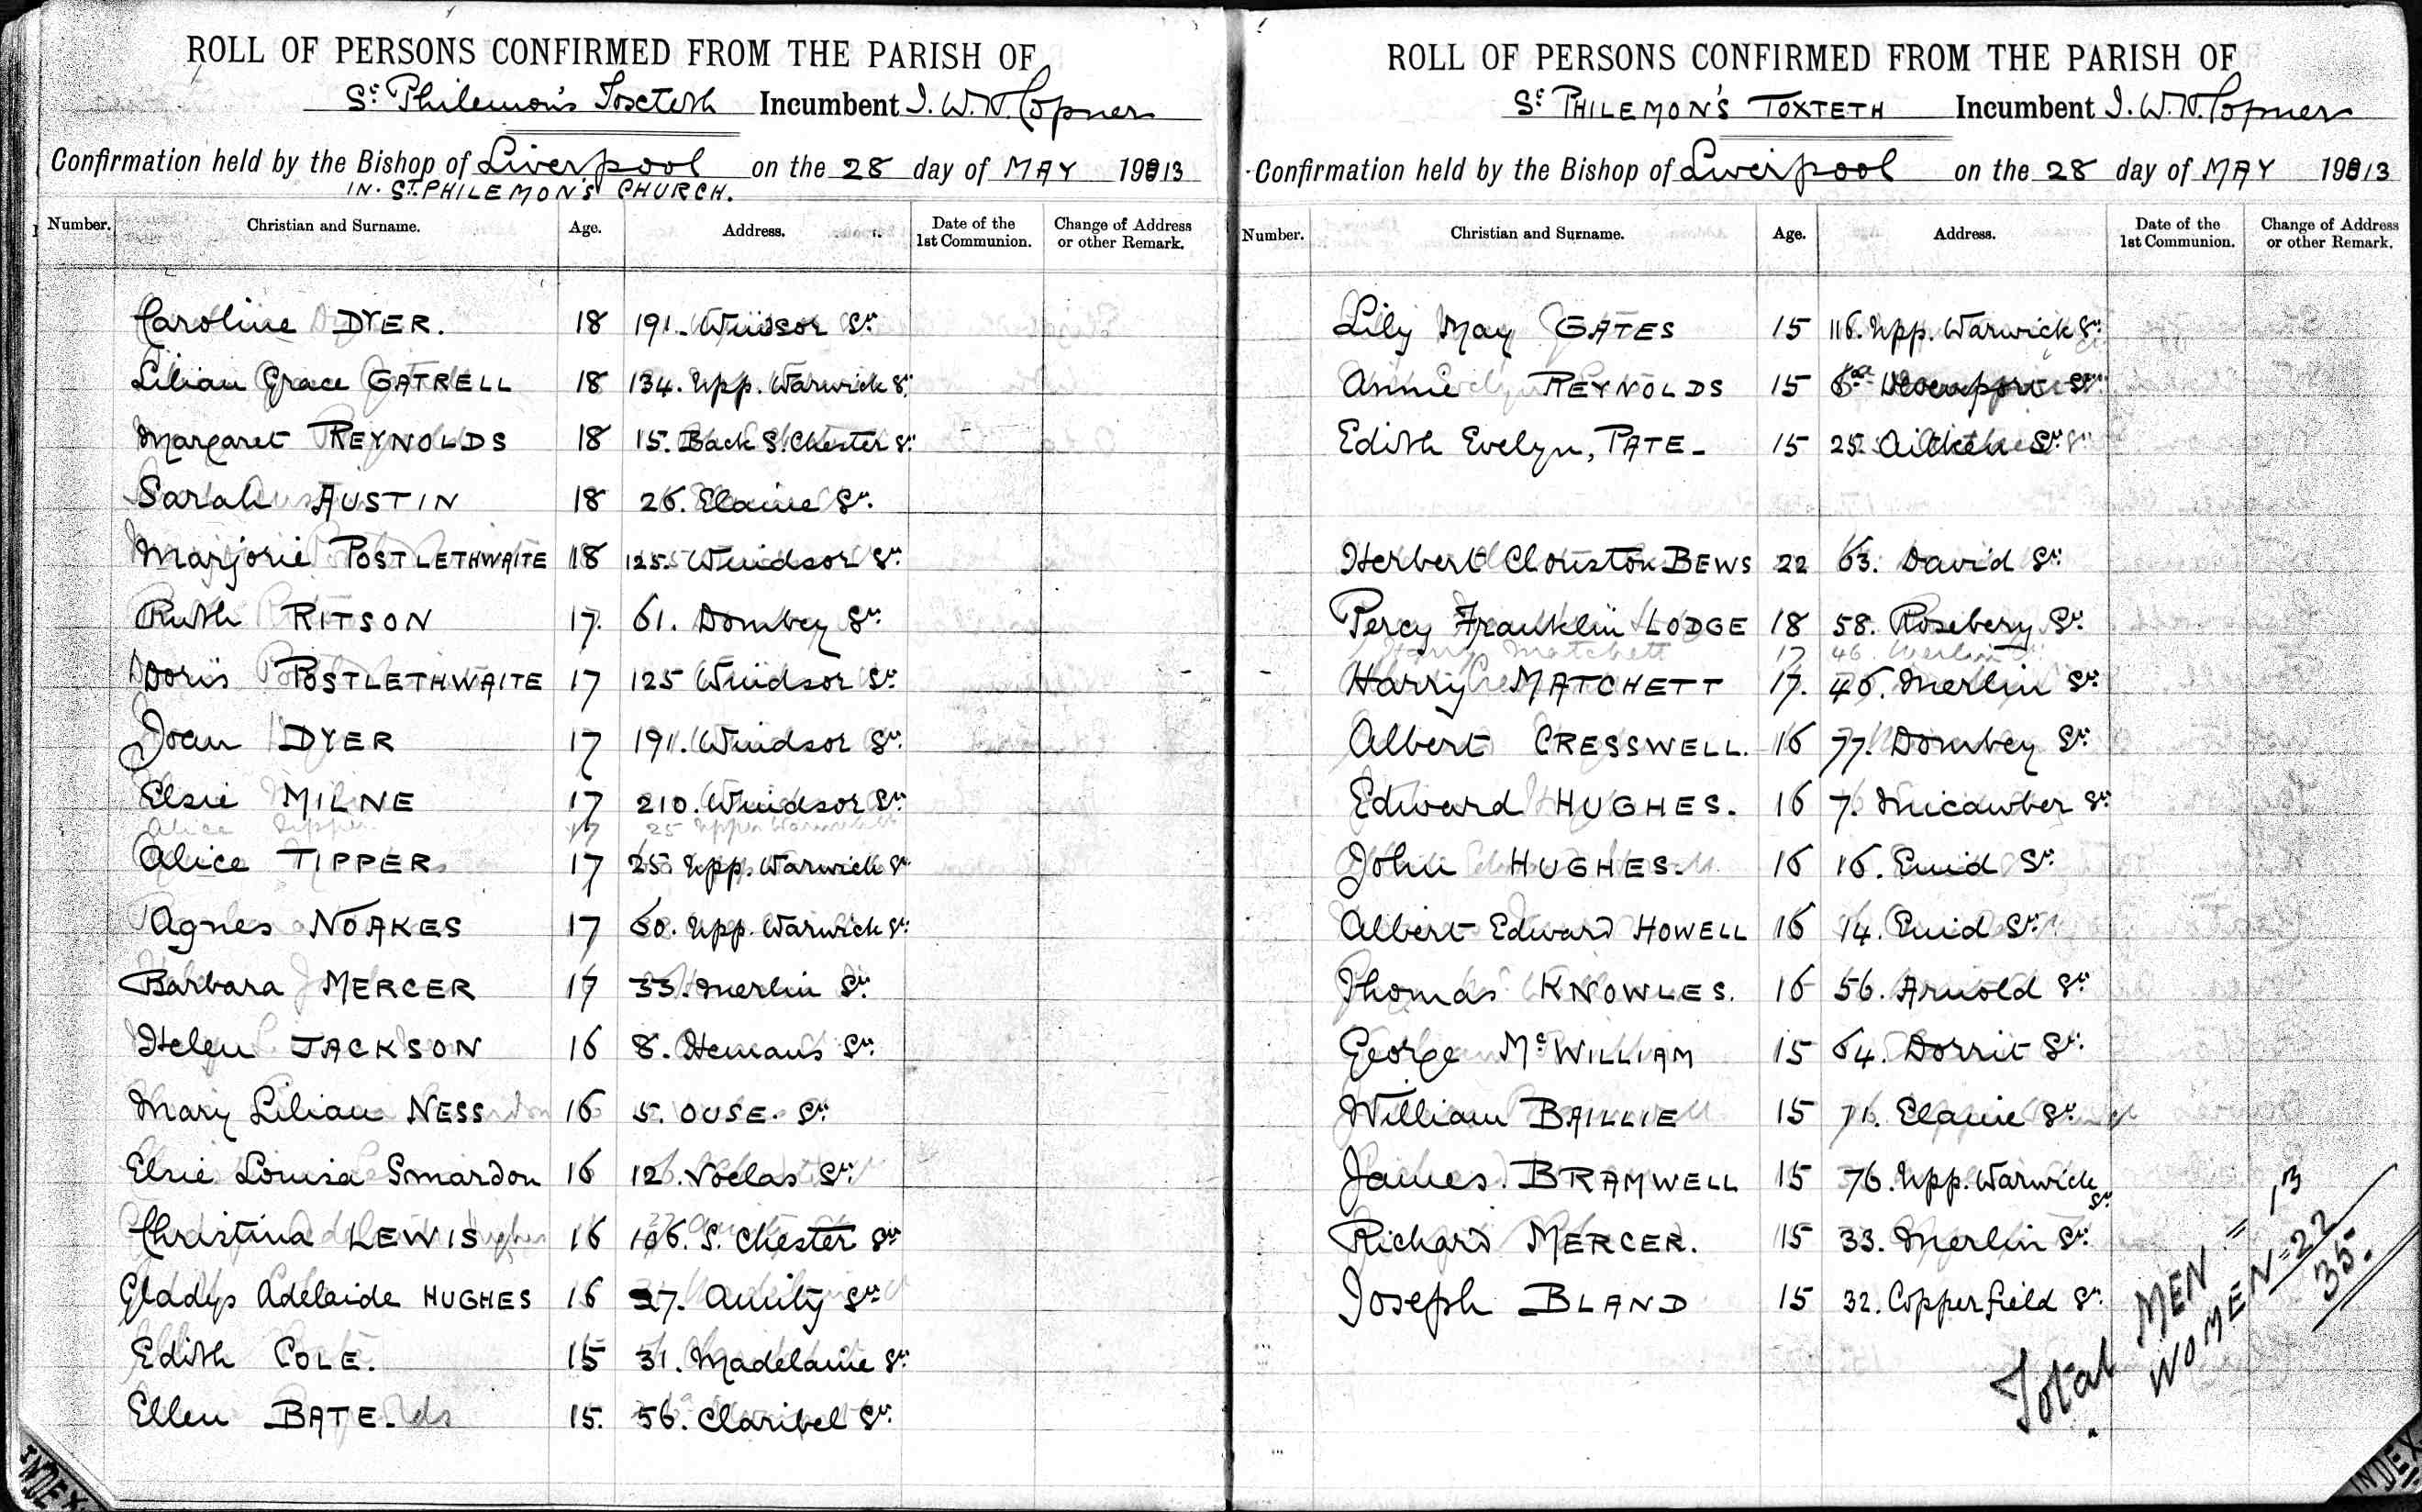 ROLL OF PERSONS CONFIRMED FROM THE PARISH OF
St Philemon's Toxteth Incumbent J. W. N. Copner
Confirmation held by the Bishop of Liverpool on the 28 day of MAY 1913
IN. ST. PHILEMON'S CHURCH.
Number. Christian and Surname. Age. Address. Date of the 1st Communion. Change of Address or other Remark.
Caroline DYER. 18 191. Windsor St.
Lilian Grace GATRELL 18 134. Upp. Warwick St.
Margaret REYNOLDS 18 15. Back S. Chester St.
Sarah AUSTIN 18 26. Elaine St.
Marjorie POSTLETHWAITE 18 125. Windsor St.
Ruth RITSON 17. 61. Dombey St.
Doris POSTLETHWAITE 17 125 Windsor St.
Joan DYER 17 191. Windsor St.
Elsie MILNE 17 210. Windsor St.
Alice Tipper 17 25 Upper Warwick St
Alice TIPPER 17 25 Upp. Warwick St
Agnes NOAKES 17 60. Upp. Warwick St.
Barbara MERCER 17 33. Merlin St.
Helen JACKSON 16 8. Hemans St.
Mary Lilian NESS 16 5. OUSE. St.
Elsie Louisa Smardon 16 12. Voelas St.
Christina LEWIS 16 106. S. Chester St.
Gladys Adelaide HUGHES 16 27. Amity St.
Edith COLE. 15 31. Madelaine St.
Ellen BATE. 15. 56. Claribel St.
INDEX
ROLL OF PERSONS CONFIRMED FROM THE PARISH OF
St PHILEMON'S TOXTETH Incumbent J. W. N. Copner
Confirmation held by the Bishop of Liverpool on the 28 day of MAY 1913
Number. Christian and Surname. Age. Address. Date of the 1st Communion. Change of Address or other Remark.
Lily May GATES 15 116. Upp. Warwick St.
Annie REYNOLDS 15 Devenport St.
Edith Evelyn, PATE- 15 25. Aitken St.
Herbert Clouston BEWS 22 63. David St.
Percy Franklin LODGE 18 58. Rosebery St.
Harry Matchett 17 46. Merlin St
Harry MATCHETT 17. 46. Merlin St.
Albert CRESSWELL. 16 77. Dombey St.
Edward HUGHES. 16 7. Micawber St.
John HUGHES. 16 16. Enid St.
Albert Edward HOWELL 16 14. Enid St.
Thomas KNOWLES. 16 56. Arnold St.
George McWILLIAM 15 64. Dorrit St.
William BAILLIE 15 71. Elaine St.
James. BRAMWELL 15 76. Upp. Warwick St.
Richard MERCER. 15 33. Merlin St.
Joseph BLAND 15 32. Copperfield St.
Total MEN = 13
WOMEN = 22
35.
INDEX